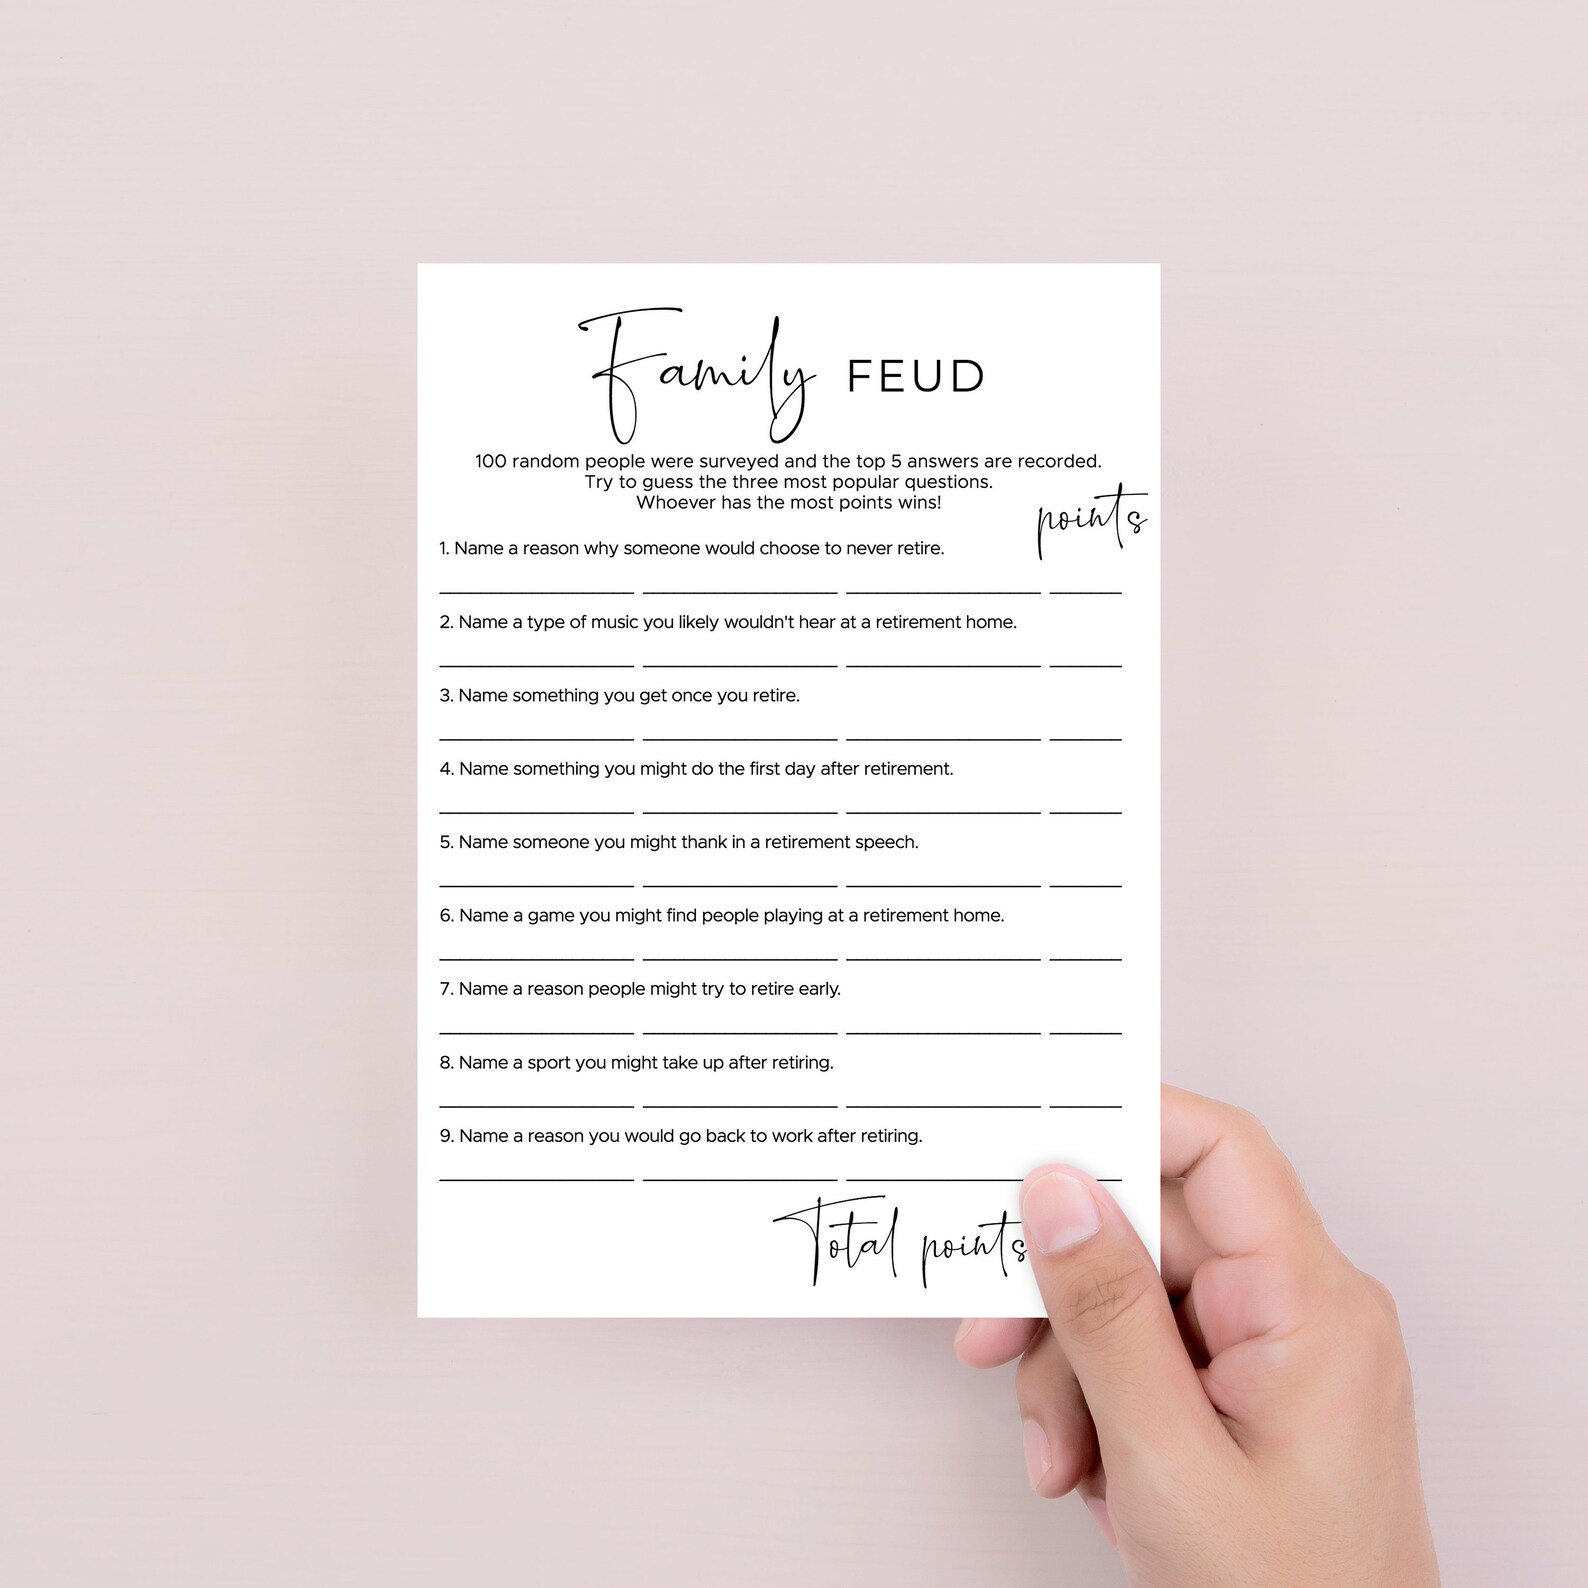 Family FEUD
100 random people were surveyed and the top 5 answers are recorded.
Try to guess the three most popular questions.
Whoever has the most points wins!
points
1. Name a reason why someone would choose to never retire.
2. Name a type of music you likely wouldn't hear at a retirement home.
3. Name something you get once you retire.
4. Name something you might do the first day after retirement.
5. Name someone you might thank in a retirement speech.
6. Name a game you might find people playing at a retirement home.
7. Name a reason people might try to retire early.
8. Name a sport you might take up after retiring.
9. Name a reason you would go back to work after retiring.
Total points